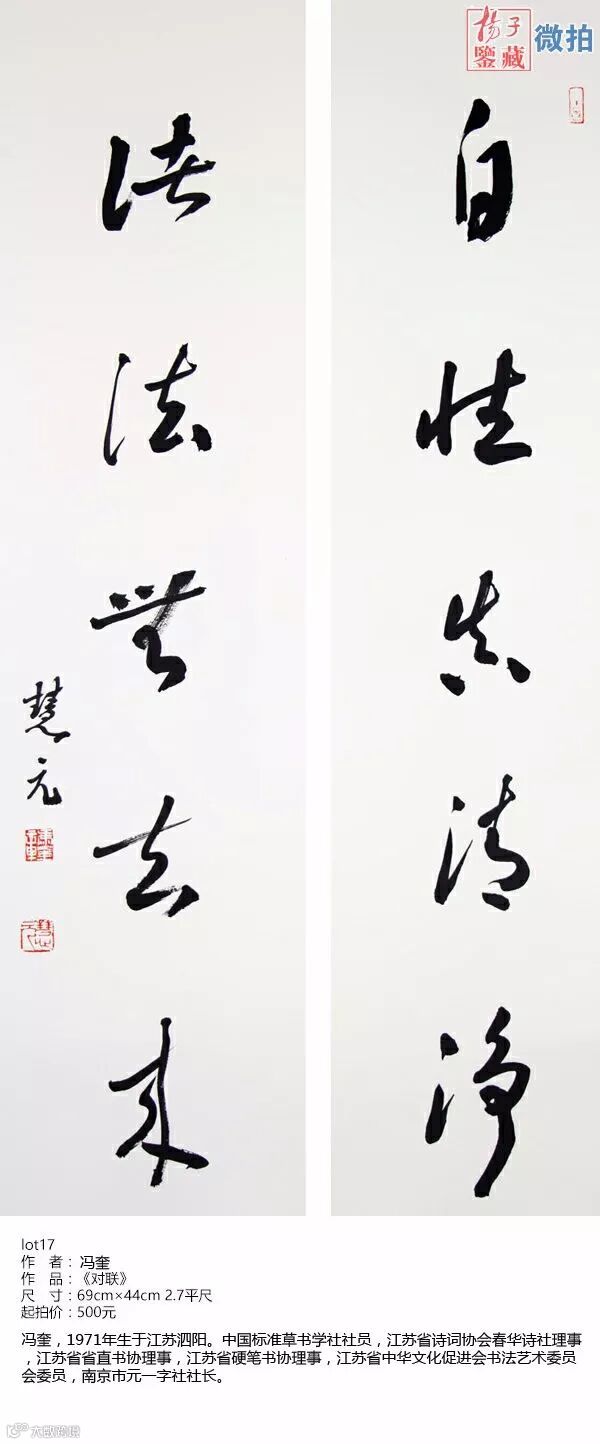 杨子
鉴藏
微拍
自性真清净
诸法无去来
慧元
lot17
作 者：冯奎
作 品：《对联》
尺 寸：69cm×44cm 2.7平尺
起拍价：500元
冯奎，1971年生于江苏泗阳。中国标准草书学社社员，江苏省诗词协会春华诗社理事
，江苏省省直书协理事，江苏省硬笔书协理事，江苏省中华文化促进会书法艺术委员
会委员，南京市元一字社社长。
大数跨境